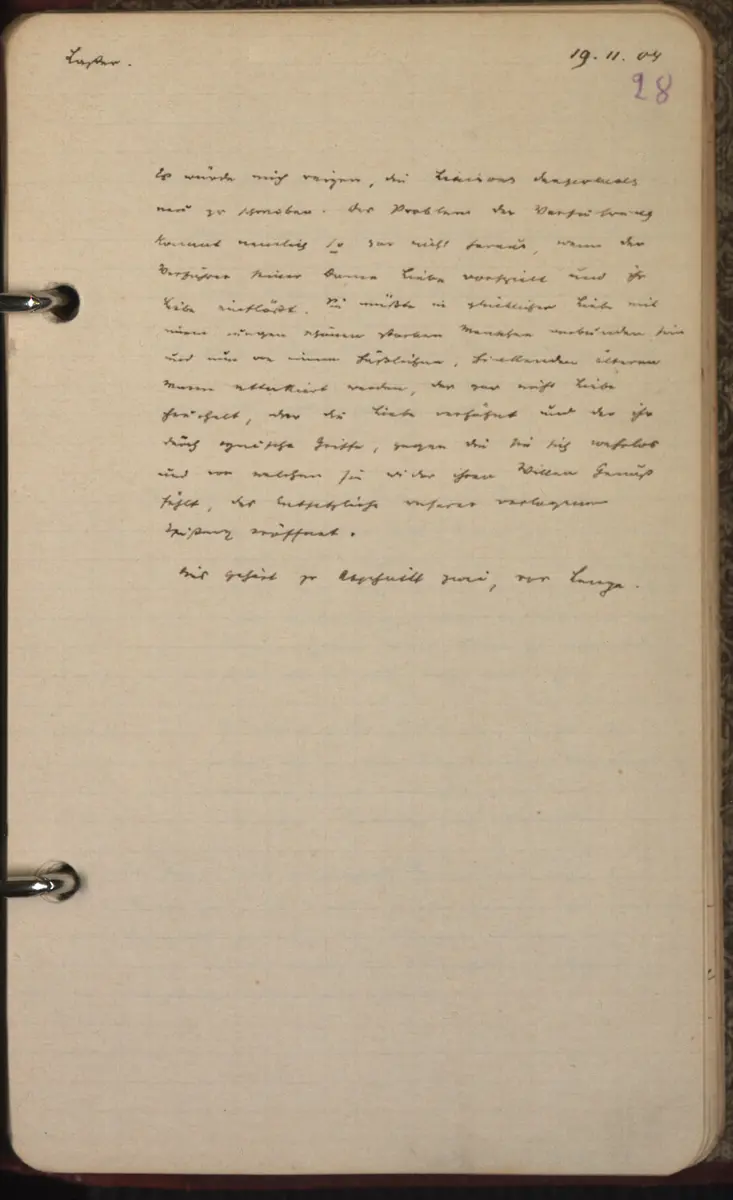 Laster.
19. 11. 04
28
Es würde mich reizen, die Liaisons dangereuses
neu zu schreiben. Das Problem der Verführung
kommt nämlich so gar nicht heraus, wenn der
Verführer seiner Dame Liebe vorspielt und ihr
Liebe einflößt. Sie müßte in glücklicher Liebe mit
einem jungen schönen starken Menschen verbunden sein
und nun von einem häßlichen, hinkenden älteren
Mann attackiert werden, der gar nicht Liebe
heuchelt, der die Liebe verhöhnt und der ihr
durch zynische Griffe, gegen die sie sich wehrlos
und von welchen sie wider ihren Willen Genuß
fühlt, das Entsetzliche unserer verlogenen
eröffnet.
Dies gehört zu Abschnitt zwei, vor